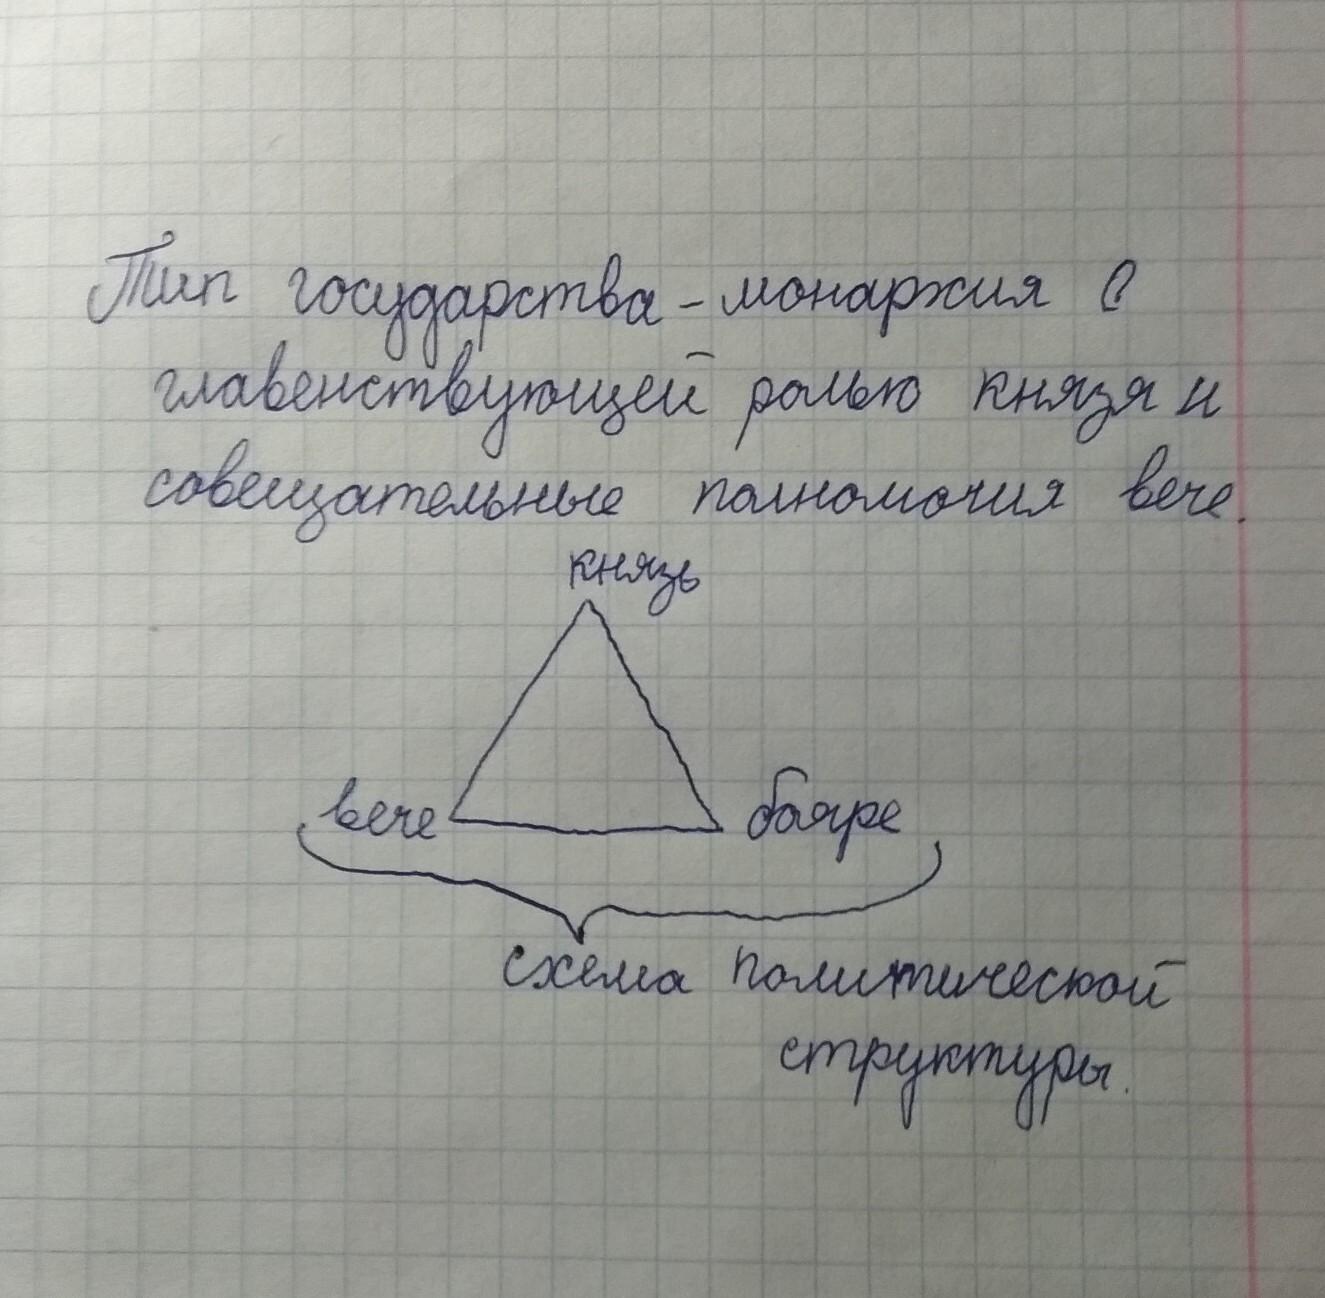 Тип государства - монархия с
главенствующей ролью князя и
совещательные полномочия вече.
князь
вече бояре
схема политической
структуры.